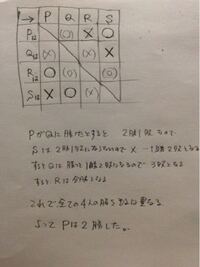 → P Q R S
P は (○) × ○
Q は (×) ×
R は ○ (○)
S は × ○ (×)
PがQに勝ったとすると 2勝1敗 なので
Sは2勝1敗にならないので × → 1勝2敗となる
するとQは 勝 1 敗 になるので 3敗となる
するとRは全勝となる
これで全ての4人の勝 異なる
よって Pは2勝した。